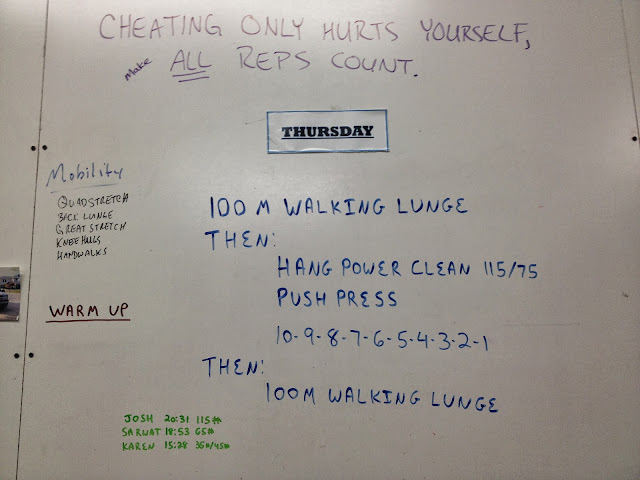 CHEATING ONLY HURTS YOURSELF,
make ALL REPS COUNT.
THURSDAY
Mobility
QUADSTRETCH
BACK LUNGE
GREAT STRETCH
KNEE HUGS
HANDWALKS
WARM UP
100 M WALKING LUNGE
THEN:
HANG POWER CLEAN 115/75
PUSH PRESS
10-9-8-7-6-5-4-3-2-1
THEN:
100M WALKING LUNGE
JOSH 20:31 115#
SARWAT 18:53 65#
KAREN 15:28 35#/45#